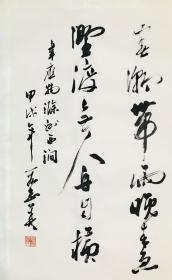 春潮帶雨晚來急
野渡無人舟自橫
韋應物滁州西澗
甲戌年